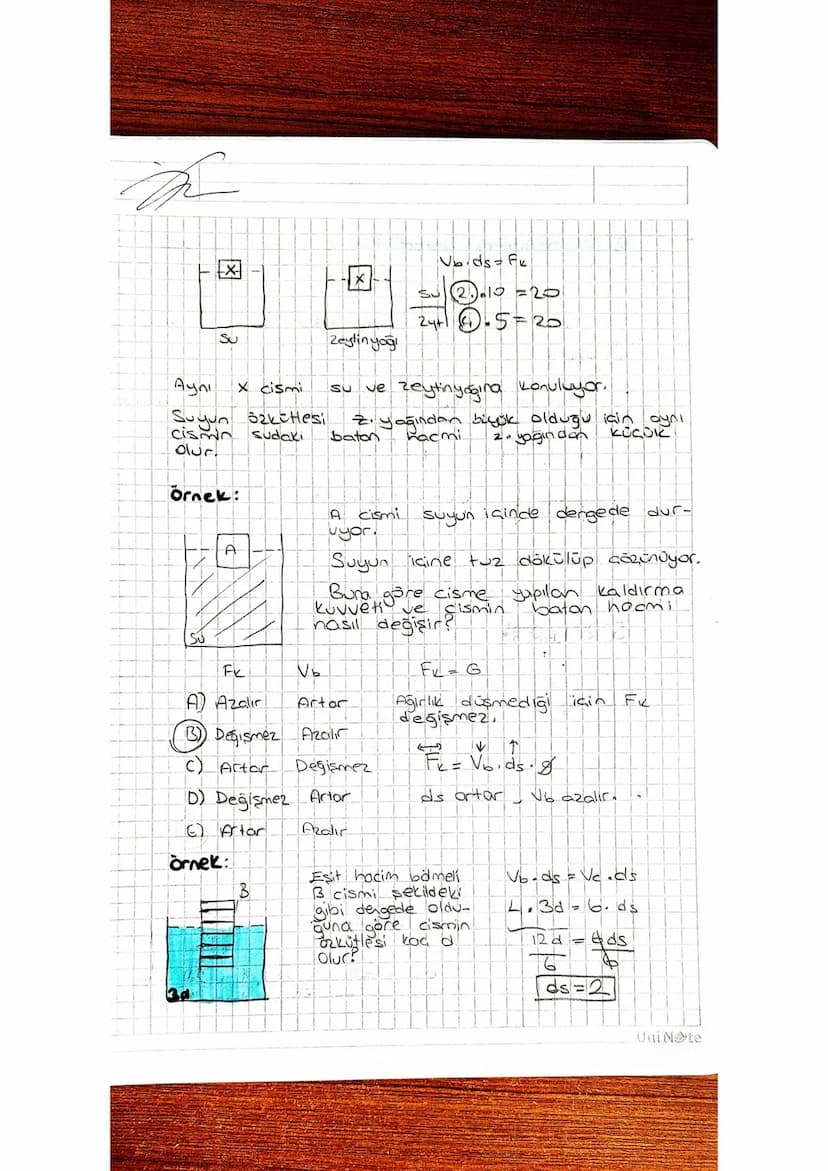 X
Su
X
Zeytinyağı
Vb.ds = Fk
su | 2.10 = 20
Zyt | 4.5 = 20
Aynı x cismi su ve zeytinyağına konuluyor.
Suyun özkütlesi z. yağından büyük olduğu için aynı
cismin sudaki batan hacmi z. yağından küçük
olur.
Örnek:
A
Su
A cismi suyun içinde dengede dur-
uyor.
Suyun içine tuz dökülüp çözünüyor.
Buna göre cisme yapılan kaldırma
kuvveti ve cismin batan hacmi
nasıl değişir?
Fk Vb
A) Azalır Artar
B) Değişmez Azalır
C) Artar Değişmez
D) Değişmez Artar
E) Artar Azalır
Fk = G
Ağırlık düşmediği için Fk
değişmez.
↔ ↓ ↑
Fk = Vb.ds.g
ds artar, Vb azalır.
Örnek:
B
3d
Eşit hacim bölmeli
B cismi şekildeki
gibi dengede oldu-
ğuna göre cismin
özkütlesi kaç d
olur?
Vb.ds = Vc.ds
4.3d = 6.ds
12d = 6ds
6 6
ds = 2
UniNote